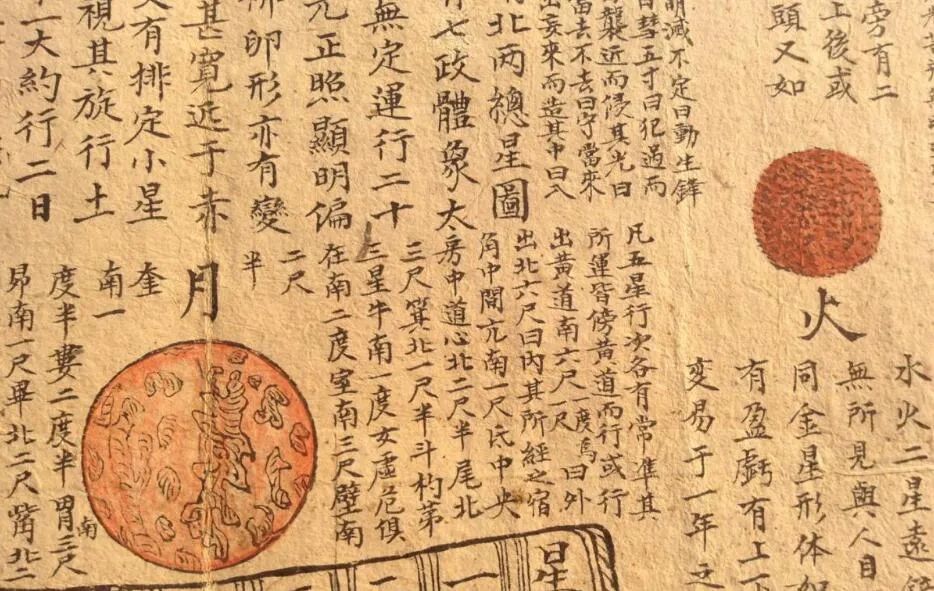 旁有二
上後或
頭又如
火
水火二星遠
無所見與人目
同金星形体如
有盈虧有上下
变易于一年之
萌滅不定曰動生鋒
彗五寸曰犯過而
襲近而侵其光曰
當去不去曰守當來
出妄來而造其中曰入
凡五星行次各有常準其
所運皆傍黃道而行或行
出黃道南六尺一度焉曰外
出北六尺曰内其所經之宿
角中間亢南一尺氐中央
房中道心北二尺半尾北
三尺箕北一尺半斗杓第
三星牛南一度女虛危俱
在南二度室南三尺壁南
二尺
半
北两總星圖
有七政體象太
無定運行二十
元正照顯明偏
卵形亦有變
甚寬远于赤
又有排定小星
視其旋行土
一大約行二日
月
奎
南一
度半婁二度半胃三尺
南
昴南一尺畢北二尺觜北二
星
一
一